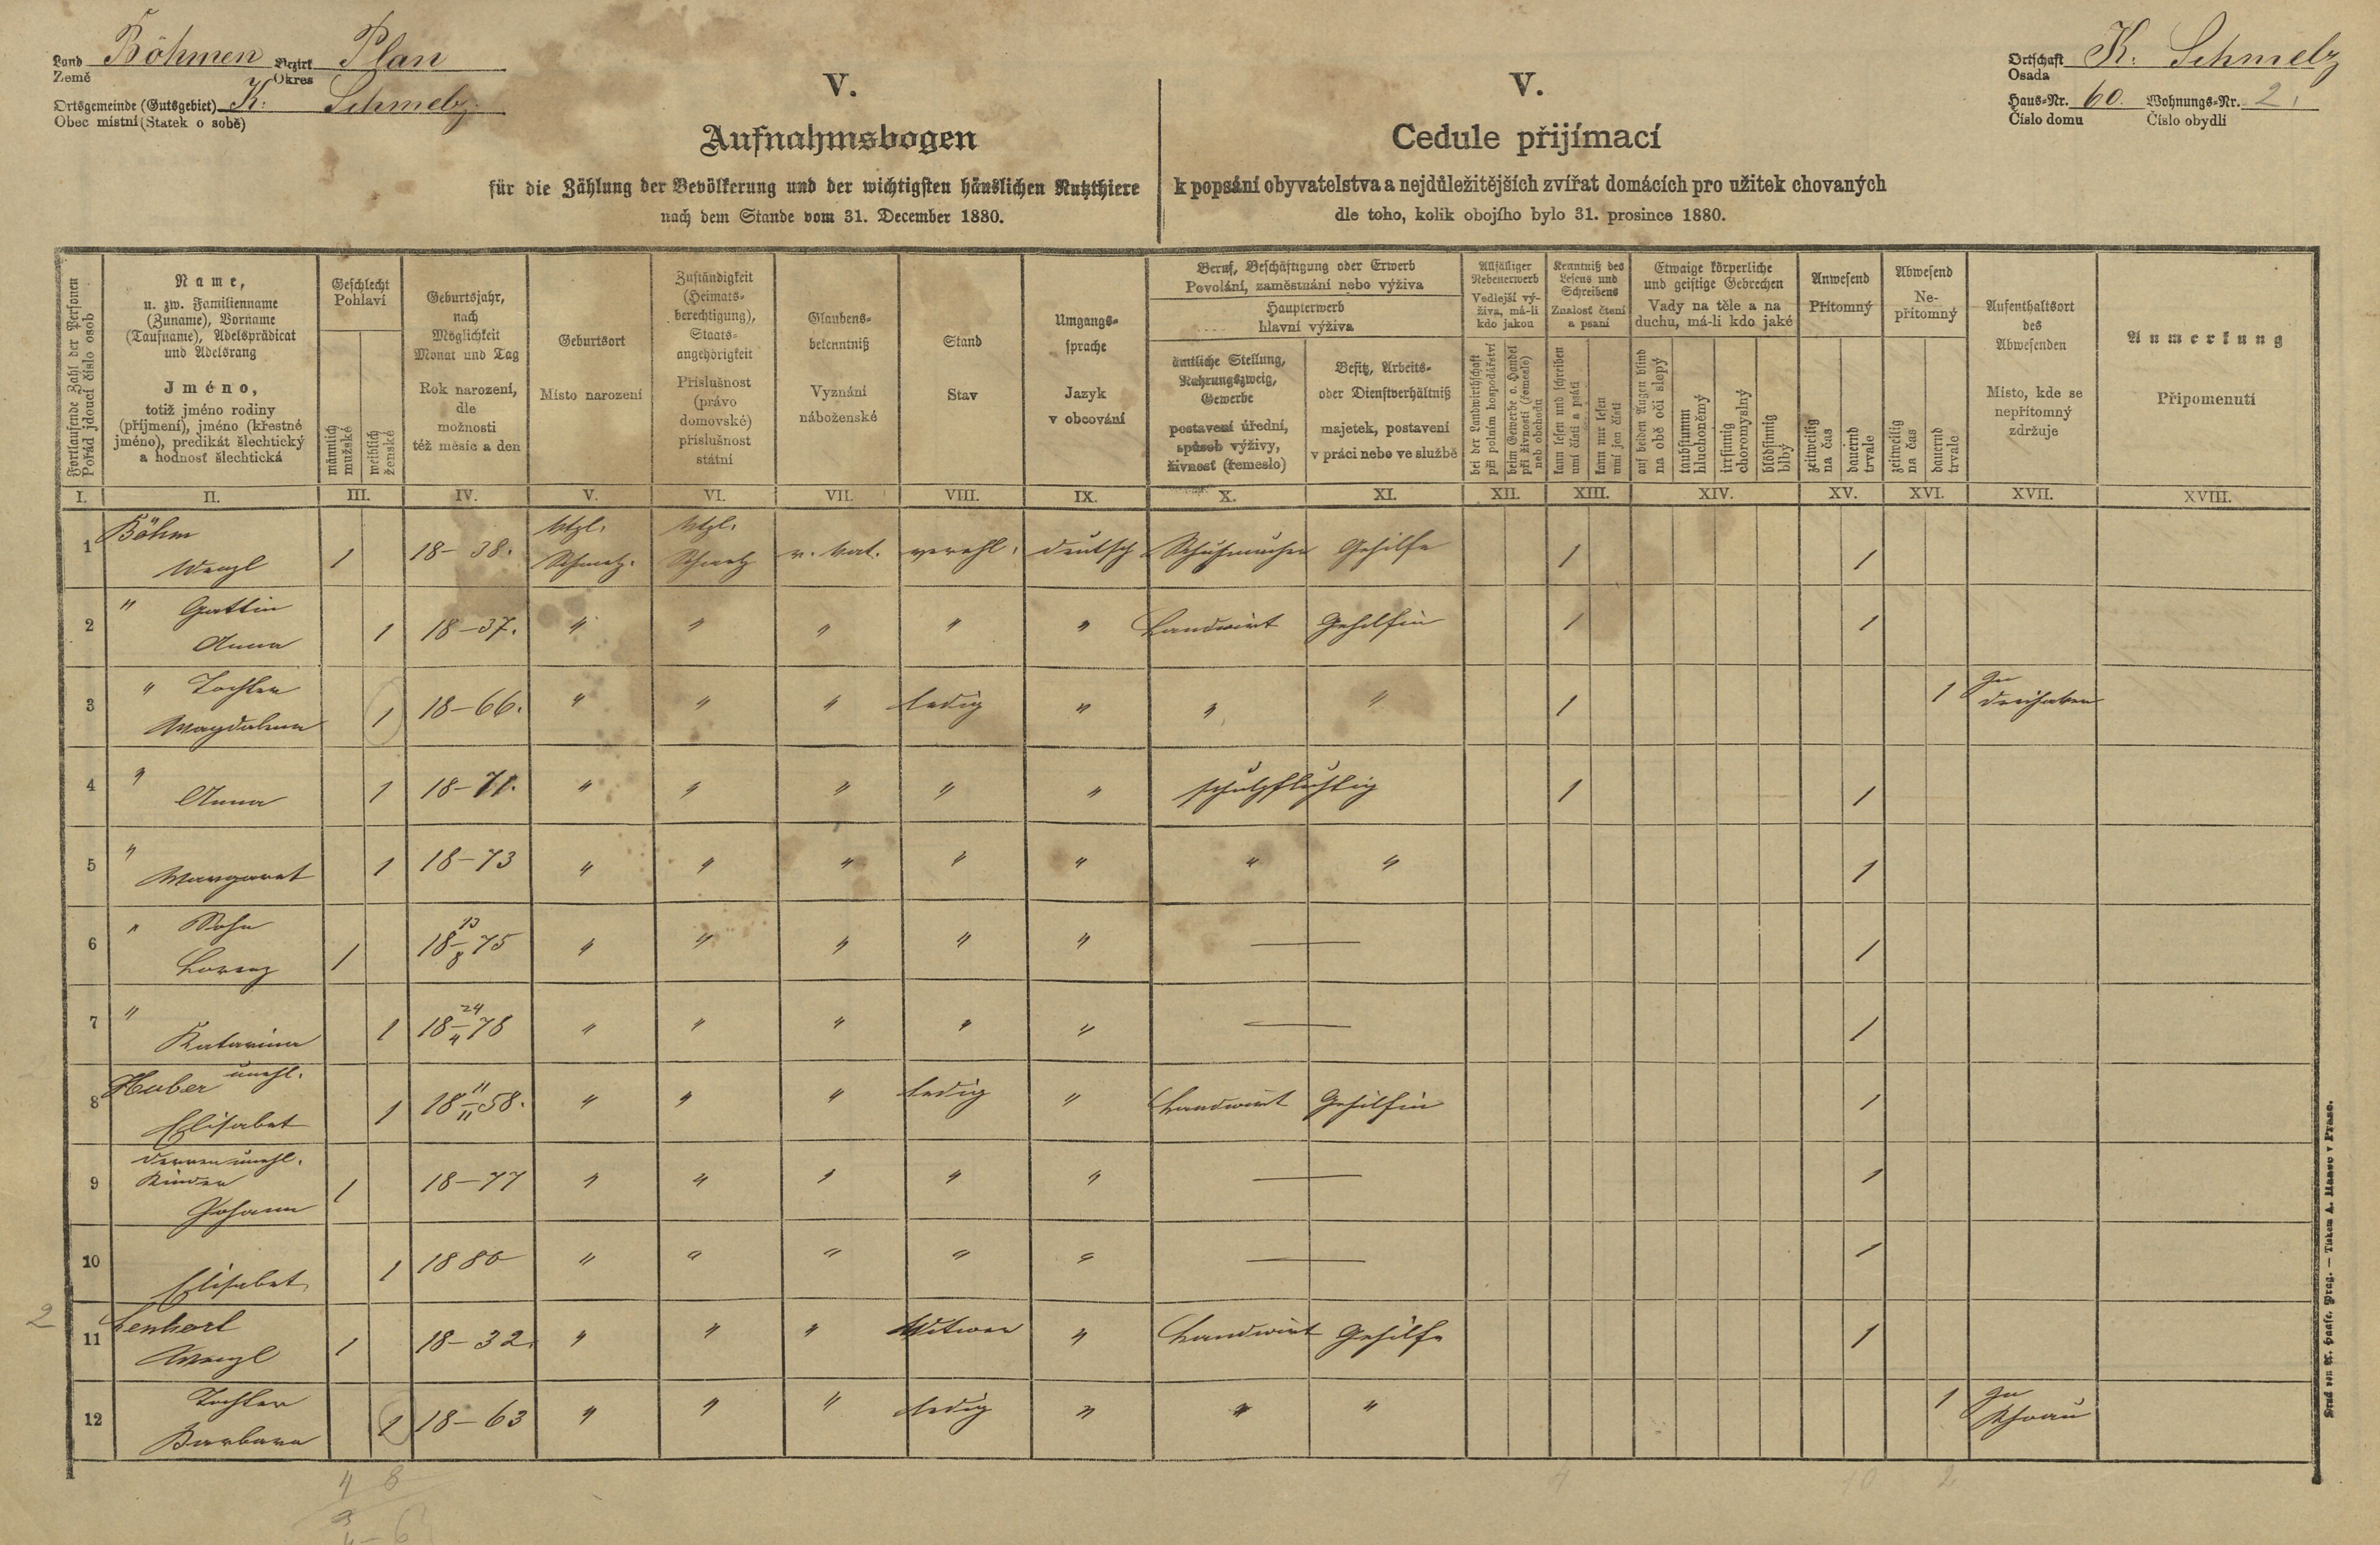 Land Böhmen Bezirk Plan
Země Okres
Ortsgemeinde (Gutsgebiet) K: Schmelz
Obec místní (Statek o sobě)
Ortschaft K: Schmelz
Osada
Haus-Nr. 60. Wohnungs-Nr. 2.
Číslo domu Číslo obydlí
V.
Aufnahmsbogen
für die Zählung der Bevölkerung und der wichtigsten häuslichen Nutzthiere
nach dem Stande vom 31. December 1880.
V.
Cedule přijímací
k popsání obyvatelstva a nejdůležitějších zvířat domácích pro užitek chovaných
dle toho, kolik obojího bylo 31. prosince 1880.
Fortlaufende Zahl der Personen
Pořád jdoucí číslo osob
Name,
u. zw. Familienname
(Zuname), Vorname
(Taufname), Adelsprädicat
und Adelsrang
Jméno,
totiž jméno rodiny
(příjmení), jméno (křestné
jméno), predikát šlechtický
a hodnosť šlechtická
Geschlecht
Pohlaví
männlich
mužské
weiblich
ženské
Geburtsjahr,
nach
Möglichkeit
Monat und Tag
Rok narození,
dle
možnosti
též měsíc a den
Geburtsort
Místo narození
Zuständigkeit
(Heimats-
berechtigung),
Staats-
angehörigkeit
Příslušnost
(právo
domovské)
příslušnost
státní
Glaubens-
bekenntniß
Vyznání
náboženské
Stand
Stav
Umgangs-
sprache
Jazyk
v obcování
Beruf, Beschäftigung oder Erwerb
Povolání, zaměstnání nebo výživa
Haupterwerb
hlavní výživa
ämtliche Stellung,
Nahrungszweig,
Gewerbe
postavení úřední,
spůsob výživy,
živnosť (řemeslo)
Besitz, Arbeits-
oder Dienstverhältniß
majetek, postavení
v práci nebo ve službě
Allfälliger
Nebenerwerb
Vedlejší vý-
živa, má-li
kdo jakou
bei der Landwirthschaft
při polním hospodářství
beim Gewerbe o. Handel
při živnosti (řemesle)
neb obchodu
Kenntniß des
Lesens und
Schreibens
Znalosť čtení
a psaní
kann lesen und schreiben
umí čísti a psáti
kann nur lesen
umí jen čísti
Etwaige körperliche
und geistige Gebrechen
Vady na těle a na
duchu, má-li kdo jaké
auf beiden Augen blind
na obě oči slepý
taubstumm
hluchoněmý
irrsinnig
choromyslný
blödsinnig
blbý
Anwesend
Přítomný
zeitweilig
na čas
dauernd
trvale
Abwesend
Ne-
přítomný
zeitweilig
na čas
dauernd
trvale
Aufenthaltsort
des
Abwesenden
Místo, kde se
nepřítomný
zdržuje
Anmerkung
Připomenutí
I. II. III. IV. V. VI. VII. VIII. IX. X. XI. XII. XIII. XIV. XV. XVI. XVII. XVIII.
Böhm
1 Wenzl 1 18-38. Schmelz. Schmelz r. kat. verehl. deutsch Schuhmacher Gehilfe 1 1
" Gattin
2 Anna 1 18-37. " " " " " Landwirt Gehilfin 1 1
" Tochter
3 Magdalena 1 18-66. " " " ledig " " " 1 1
"
4 Anna 1 18-71. " " " " " schulpflichtig 1 1
"
5 Margaret 1 18-73 " " " " " " " 1
" Sohn
6 Lorenz 1 18 13/8 75 " " " " " — 1
"
7 Katarina 1 18 24/4 78 " " " " " — 1
Huber unehl.
8 Elisabet 1 18 11/11 58. " " " ledig " Landwirt Gehilfin 1
deren unehl.
Kinder
9 Johann 1 18-77 " " " " " — 1
10 Elisabet 1 1880 " " " " " — 1
2
Lenhart
11 Wenzl 1 18-32. " " " Witwer " Landwirt Gehilfe 1
Tochter
12 Barbara 1 18-63 " " " ledig " " " 1
4 8
10 2
Druck von A. Haase, Prag. — Tiskem A. Haase v Praze.